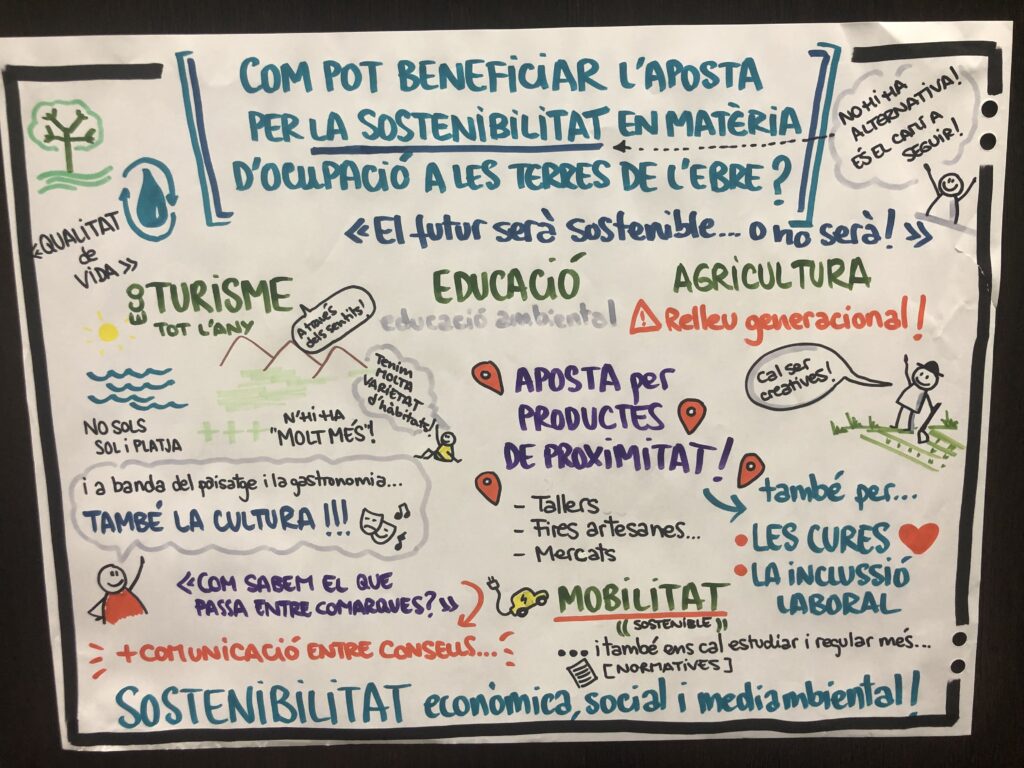 COM POT BENEFICIAR L'APOSTA
PER LA SOSTENIBILITAT EN MATÈRIA
D'OCUPACIÓ A LES TERRES DE L'EBRE?
NO HI HA
ALTERNATIVA!
ÉS EL CAMÍ A
SEGUIR!
«El futur serà sostenible... o no serà!»
«QUALITAT
de
VIDA»
ECO TURISME
TOT L'ANY
A través
dels sentits!
Tenim
MOLTA
VARIETAT
d'hàbitats!
NO SOLS
SOL i PLATJA
N'HI HA
"MOLT MÉS"!
i a banda del paisatge i la gastronomia...
TAMBÉ LA CULTURA!!!
«COM SABEM EL QUE
PASSA ENTRE COMARQUES?»
+ COMUNICACIÓ ENTRE CONSELLS...
EDUCACIÓ
educació ambiental
AGRICULTURA
Relleu generacional!
Cal ser
creatives!
APOSTA per
PRODUCTES
DE PROXIMITAT!
- Tallers
- Fires artesanes...
- Mercats
també per...
• LES CURES
• LA INCLUSSIÓ
LABORAL
MOBILITAT
((SOSTENIBLE))
... i també ens cal estudiar i regular més...
[NORMATIVES]
SOSTENIBILITAT econòmica, social i mediambiental!